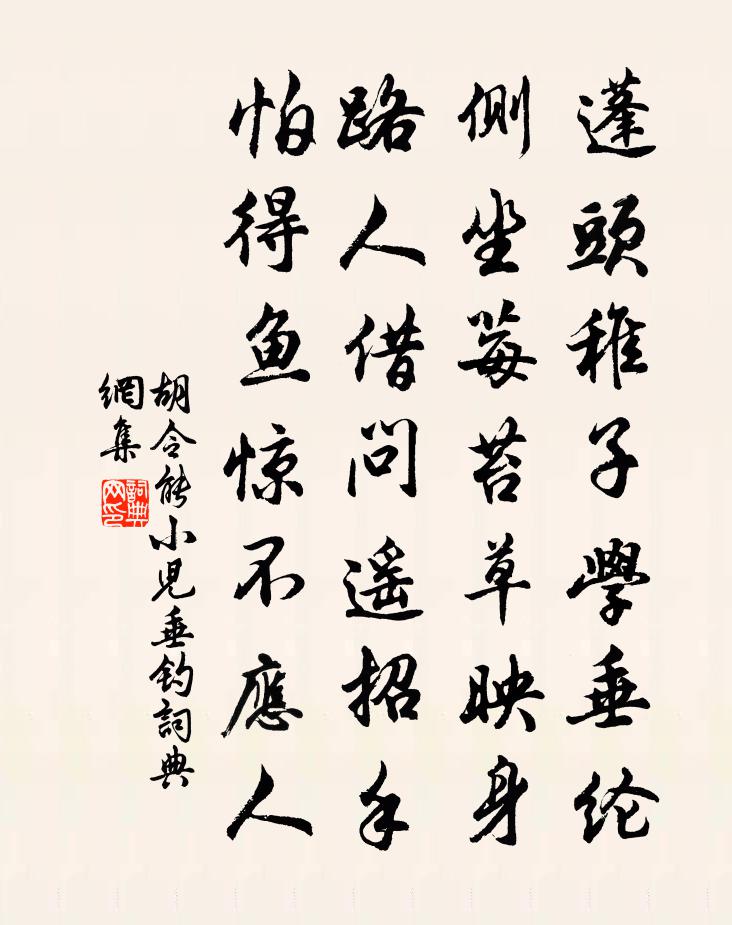 蓬頭稚子學垂纶
侧坐莓苔草映身
路人借问遥招手
怕得鱼惊不應人
胡令能小兒垂钓詞典
網集
詞典
网印